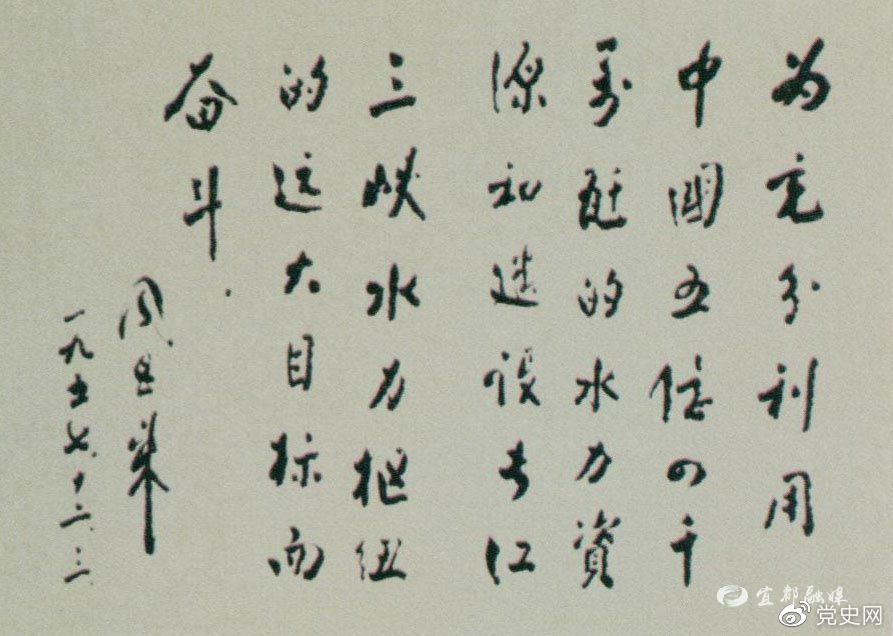 为充分利用
中國五億四千
萬瓩的水力資
源和建設长江
三峡水力枢纽
的远大目标而
奋斗.
周恩来
一九五七.十二.三.
宜都融媒
党史网